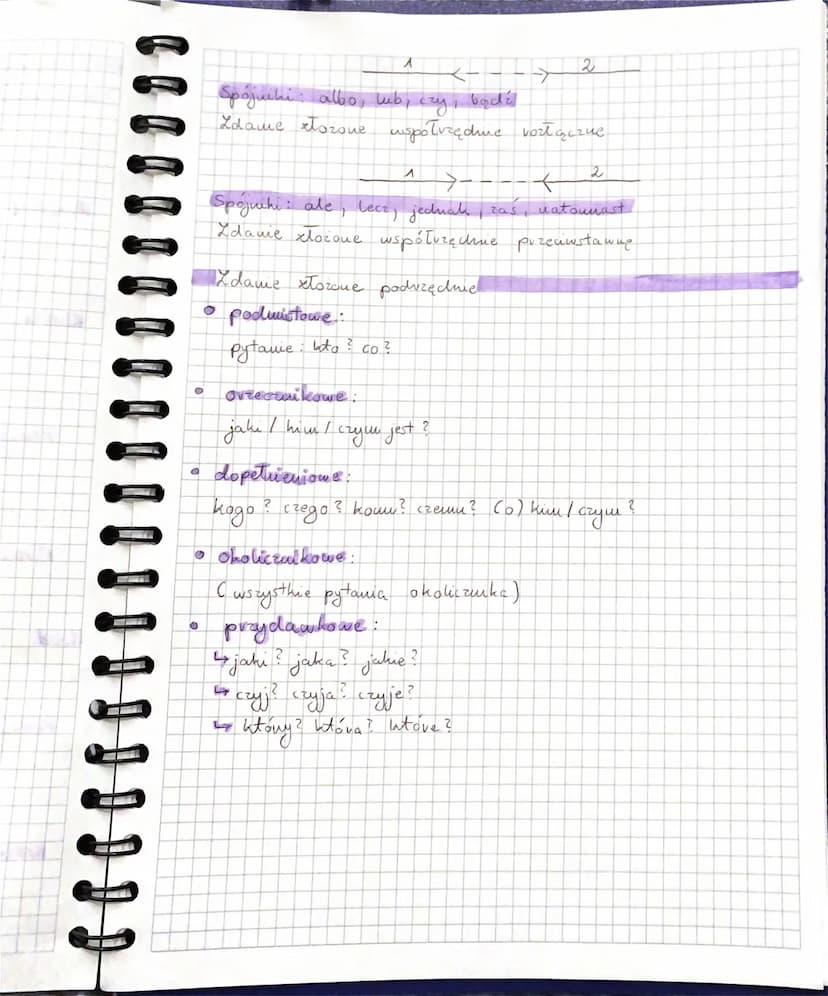 1 2
Spójniki: albo, lub, czy, bądź
Zdanie złożone współrzędnie rozłączne
1 2
Spójniki: ale, lecz, jednak, zaś, natomiast
Zdanie złożone współrzędnie przeciwstawne
Zdanie złożone podrzędnie
• podmiotowe:
pytanie: kto? co?
• orzecznikowe:
jaki / kim / czym jest?
• dopełnieniowe:
kogo? czego? komu? czemu? (o) kim / czym?
• okolicznikowe:
(wszystkie pytania okolicznika)
• przydawkowe:
↳ jaki? jaka? jakie?
↳ czyj? czyja? czyje?
↳ który? która? które?